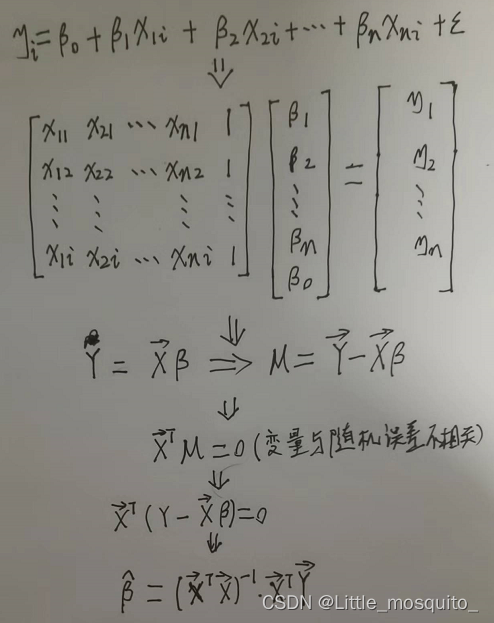 y_i = β_0 + β_1 X_{1i} + β_2 X_{2i} + ⋯ + β_n X_{ni} + ε
⇓
[ x_{11} x_{21} ⋯ x_{n1} 1 ] [ β_1 ] = [ y_1 ]
[ x_{12} x_{22} ⋯ x_{n2} 1 ] [ β_2 ] [ y_2 ]
[ ⋮ ⋮ ⋮ ⋮ ] [ ⋮ ] [ ⋮ ]
[ x_{1i} x_{2i} ⋯ x_{ni} 1 ] [ β_n ] [ y_n ]
[ β_0 ]
⇓
Y = X⃗β ⇒ M = Y⃗ − X⃗β
⇓
X⃗ᵀM = 0 (变量与随机误差不相关)
⇓
X⃗ᵀ(Y − X⃗β) = 0
⇓
β̂ = (X⃗ᵀX⃗)⁻¹·X⃗ᵀY⃗
CSDN @Little_mosquito_